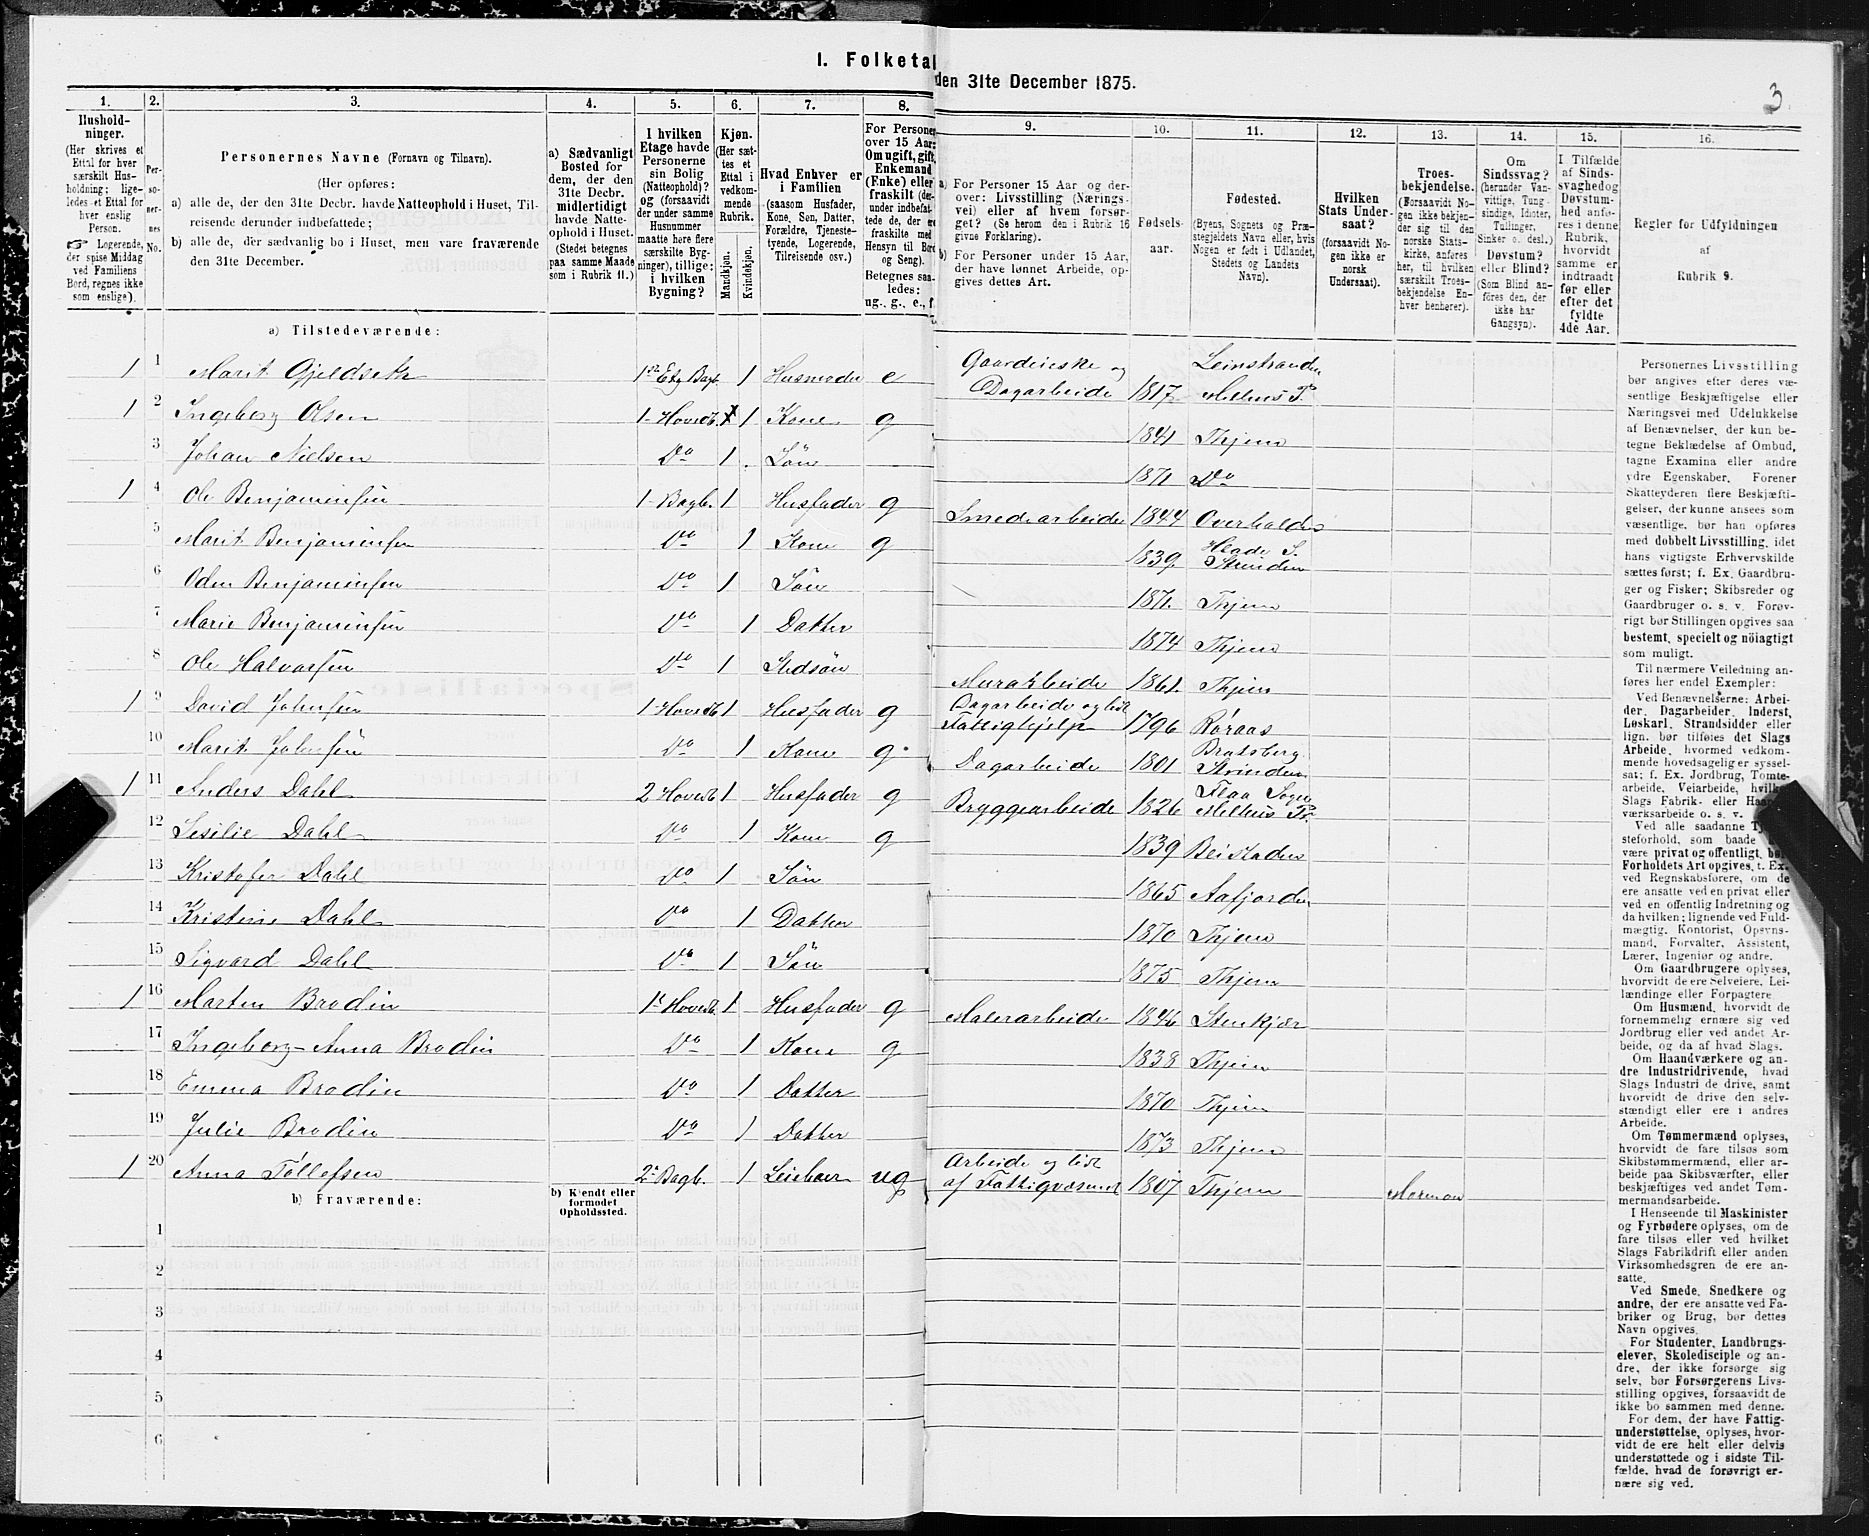 I. Folketal
den 31te December 1875.
3.
1.
Hushold-
ninger.
(Her skrives et
Ettal for hver
særskilt Hus-
holdning; lige-
ledes et Ettal for
hver enslig
Person.
☞ Logerende,
der spise Middag
ved Familiens
Bord, regnes ikke
som enslige).
2.
Per-
so-
ner-
nes
No.
3.
Personernes Navne (Fornavn og Tilnavn).
(Her opføres:
a) alle de, der den 31te Decbr. havde Natteophold i Huset, Til-
reisende derunder indbefattede;
b) alle de, der sædvanlig bo i Huset, men vare fraværende
den 31te December.
4.
a) Sædvanligt
Bosted for
dem, der den
31te Decbr.
midlertidigt
havde Natte-
ophold i Huset.
(Stedet betegnes
paa samme Maade
som i Rubrik 11.)
5.
I hvilken
Etage havde
Personerne
sin Bolig
(Natteophold)?
og (forsaavidt
der under samme
Husnummer
maatte høre flere
særskilte Byg-
ninger), tillige:
i hvilken
Bygning?
6.
Kjøn.
(Her sæt-
tes et
Ettal i
vedkom-
mende
Rubrik.
Mandkjøn.
Kvindekjøn.
7.
Hvad Enhver er
i Familien
(saasom Husfader,
Kone, Søn, Datter,
Forældre, Tjeneste-
tyende, Logerende,
Tilreisende osv.)
8.
For Personer
over 15 Aar:
Om ugift, gift,
Enkemand
(Enke) eller
fraskilt (der-
under indbefat-
tede de, der ere
fraskilte med
Hensyn til Bord
og Seng).
Betegnes saa-
ledes:
ug., g., e., f.
9.
a) For Personer 15 Aar og der-
over: Livsstilling (Nærings-
vei) eller af hvem forsør-
get? (Se herom den i Rubrik 16
givne Forklaring).
b) For Personer under 15 Aar,
der have lønnet Arbeide, op-
gives dettes Art.
10.
Fødsels-
aar.
11.
Fødested.
(Byens, Sognets og Præ-
stegjeldets Navn eller, hvis
Nogen er født i Udlandet,
Stedets og Landets
Navn).
12.
Hvilken
Stats Under-
saat?
(forsaavidt No-
gen ikke er
norsk
Undersaat).
13.
Troes-
bekjendelse.
(Forsaavidt No-
gen ikke bekjen-
der sig til den
norske Stats-
kirke, anføres
her, til hvilken
særskilt Troes-
bekjendelse En-
hver henhører).
14.
Om
Sindssvag?
(herunder Van-
vittige, Tung-
sindige, Idioter,
Tullinger,
Sinker o. desl.)
Døvstum?
eller Blind?
(Som Blind an-
føres den, der
ikke har
Gangsyn).
15.
I Tilfælde
af Sinds-
svaghed og
Døvstum-
hed anfø-
res i denne
Rubrik,
hvorvidt
samme er
indtraadt
før eller
efter det
fyldte
4de Aar.
16.
Regler for Udfyldningen
af
Rubrik 9.
a) Tilstedeværende:
1 1 Marit Gjeldseth 1ste Etg Bagb. 1 Husmoder e Gaardeierske og Dagarbeide 1817. Leinstranden Melhus P.
1 2 Ingeborg Olsen 1- Hovedb. 1 Kone g 1841 Thjem
3 Johan Nielsen Do 1 Søn 1871 Do
1 4 Ole Benjaminsen 1- Bagb. 1 Husfader g Smedearbeide 1844 Overhalden
5 Marit Benjaminsen Do 1 Kone g 1839. Hlade S. Strinden
6 Oden Benjaminsen Do 1 Søn 1871. Thjem
7 Marie Benjaminsen Do 1 Datter 1874 Thjem
8 Ole Halvorsen Do 1 Stedsøn Murarbeide 1861. Thjem
1 9 David Johnsen 1- Hovedb 1 Husfader g Dagarbeide og lidt Fattighjelp 1796 Røraas
10 Marit Johnsen Do 1 Kone g. Dagarbeide 1801 Bratsberg Strinden
1 11 Anders Dahl 2 Hovedb 1 Husfader g Bryggearbeide 1826 Flaa Sogn Melhus Pr.
12 Sesilie Dahl Do 1 Kone g 1839 Beistaden
13 Kristofer Dahl Do 1 Søn 1865 Aafjorden
14 Kristine Dahl Do 1 Datter 1870 Thjem
15 Sigvard Dahl Do 1 Søn 1875 Thjem
1 16 Marten Brodin 1- Hovedb. 1 Husfader g Malerarbeide 1846 Stenkjær
17 Ingeborg-Anna Brodin Do 1 Kone g 1838 Thjem
18 Emma Brodin Do 1 Datter 1870 Thjem
19 Julie Brodin Do 1 Datter 1873 Thjem
1 20 Anna Tøllefsen 2- Bagb. 1 Leieboer ug Arbeide og lidt af Fattigvæsnet 1807 Thjem Mormon
b) Fraværende:
b) Kjendt eller
formodet
Opholdssted.
1
2
3
4
5
6
Personernes Livsstilling
bør angives efter deres væ-
sentlige Beskjæftigelse eller
Næringsvei med Udelukkelse
af Benævnelser, der kun be-
tegne Beklædelse af Ombud,
tagne Examina eller andre
ydre Egenskaber. Forener
Skatteyderen flere Beskjæfti-
gelser, der kunne ansees som
væsentlige, bør han opføres
med dobbelt Livsstilling, idet
hans vigtigste Erhvervskilde
sættes først; f. Ex. Gaardbru-
ger og Fisker; Skibsreder og
Gaardbruger o. s. v. Forøv-
rigt bør Stillingen opgives saa
bestemt, specielt og nöiagtigt
som muligt.
Til nærmere Veiledning an-
føres her endel Exempler:
Ved Benævnelserne: Arbei-
der, Dagarbeider, Inderst,
Løskarl, Strandsidder eller
lign. bør tilføies det Slags
Arbeide, hvormed vedkom-
mende hovedsagelig er syssel-
sat; f. Ex. Jordbrug, Tomte-
arbeide, Veiarbeide, hvilket
Slags Fabrik- eller
værksarbeide o. s. v.
Ved alle saadanne
steforhold, som baade
være privat og offentligt,
Forholdets Art opgives, t. Ex.
ved Regnskabsførere, om de
ere ansatte ved en privat eller
ved en offentlig Indretning og
da hvilken; lignende ved Fuld-
mægtig, Kontorist, Opsyns-
mand, Forvalter, Assistent,
Lærer, Ingeniør og andre.
Om Gaardbrugere oplyses,
hvorvidt de ere Selveiere, Lei-
lændinge eller Forpagtere
Om Husmænd, hvorvidt de
fornemmelig ernære sig ved
Jordbrug eller ved andet Ar-
beide, og da af hvad Slags.
Om Haandværkere og an-
dre Industridrivende, hvad
Slags Industri de drive, samt
hvorvidt de drive den selv-
stændigt eller ere i andres
Arbeide.
Om Tømmermænd oplyses,
hvorvidt de fare tilsøs som
Skibstømmermænd, eller ar-
beide paa Skibsværfter, eller
beskjæftiges ved andet Tøm-
mermandsarbeide.
I Henseende til Maskinister
og Fyrbødere oplyses, om de
fare tilsøs eller ved hvilket
Slags Fabrikdrift eller anden
Virksomhedsgren de ere an-
satte.
Ved Smede, Snedkere og
andre, der ere ansatte ved Fa-
briker og Brug, bør dettes
Navn opgives.
For Studenter, Landbrugs-
elever, Skoledisciple og an-
dre, der ikke forsørge sig
selv, bør Forsørgerens Livs-
stilling opgives, forsaavidt de
ikke bo sammen med denne.
For dem, der have Fattig-
understøttelse, oplyses, hvor-
vidt de ere helt eller delvis
understøttede og i sidste Til-
fælde, hvad de forøvrigt er-
nære sig ved.